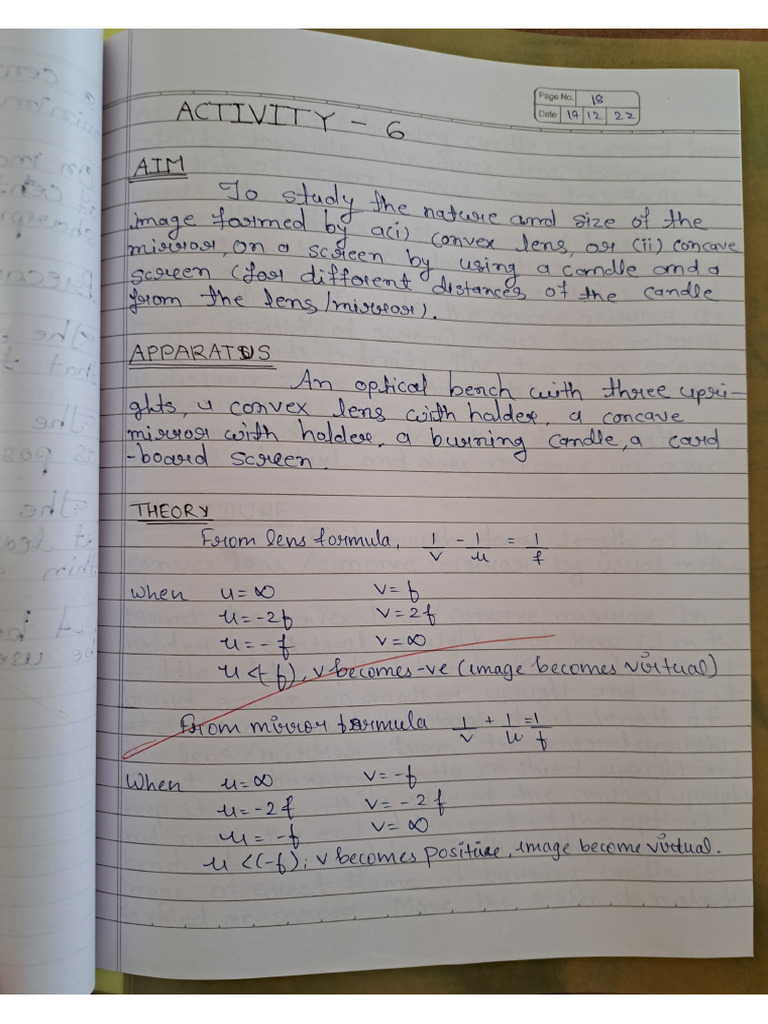 Page No. 18
Date 17 12 22
ACTIVITY - 6
AIM
To study the nature and size of the
image formed by a(i) convex lens, or (ii) concave
mirror, on a screen by using a candle and a
screen (for different distances of the candle
from the lens/mirror).
APPARATUS
An optical bench with three upri-
ghts, a convex lens with holder, a concave
mirror with holder, a burning candle, a card
-board screen.
THEORY
From lens formula, 1/v - 1/u = 1/f
When u = ∞ v = f
u = -2f v = 2f
u = -f v = ∞
u <f), v becomes -ve (image becomes virtual)
From mirror formula 1/v + 1/u = 1/f
When u = ∞ v = -f
u = -2f v = -2f
u = -f v = ∞
u <(-f); v becomes positive, image become virtual.